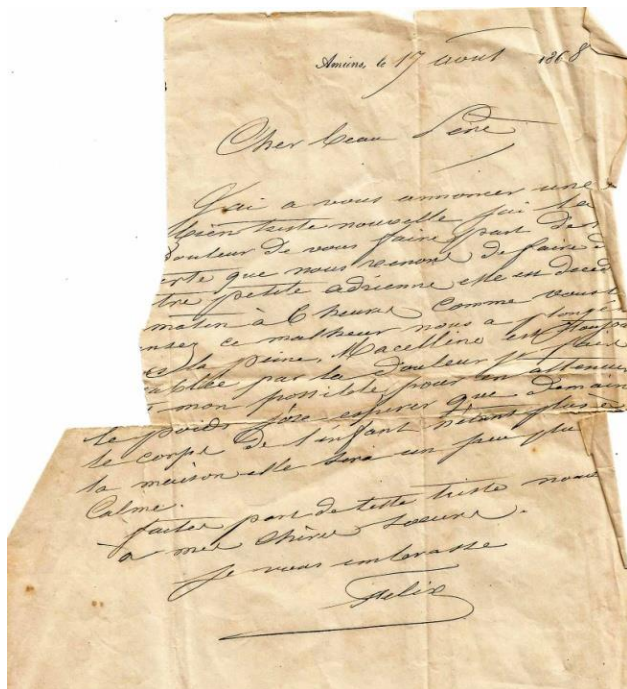 Amiens, le 17 aout 1868
Cher beau Père
J'ai a vous annoncer une
bien triste nouvelle j'ai la
douleur de vous faire part de l
rte que nous venons de faire d
tre petite adrienne elle est décéd
matin à 6 heures comme vous l
nsez ce malheur nous a plongé
la peine, Macelline est
ablée par la douleur je fais
mon possible pour en attenuer
le poids j'ose espérer que demain
le corps de l'enfant n'étant plus à
la maison elle sera un peu plus
Calme.
faites part de cette triste nouv
a mes chères soeurs.
je vous embrasse
Felix